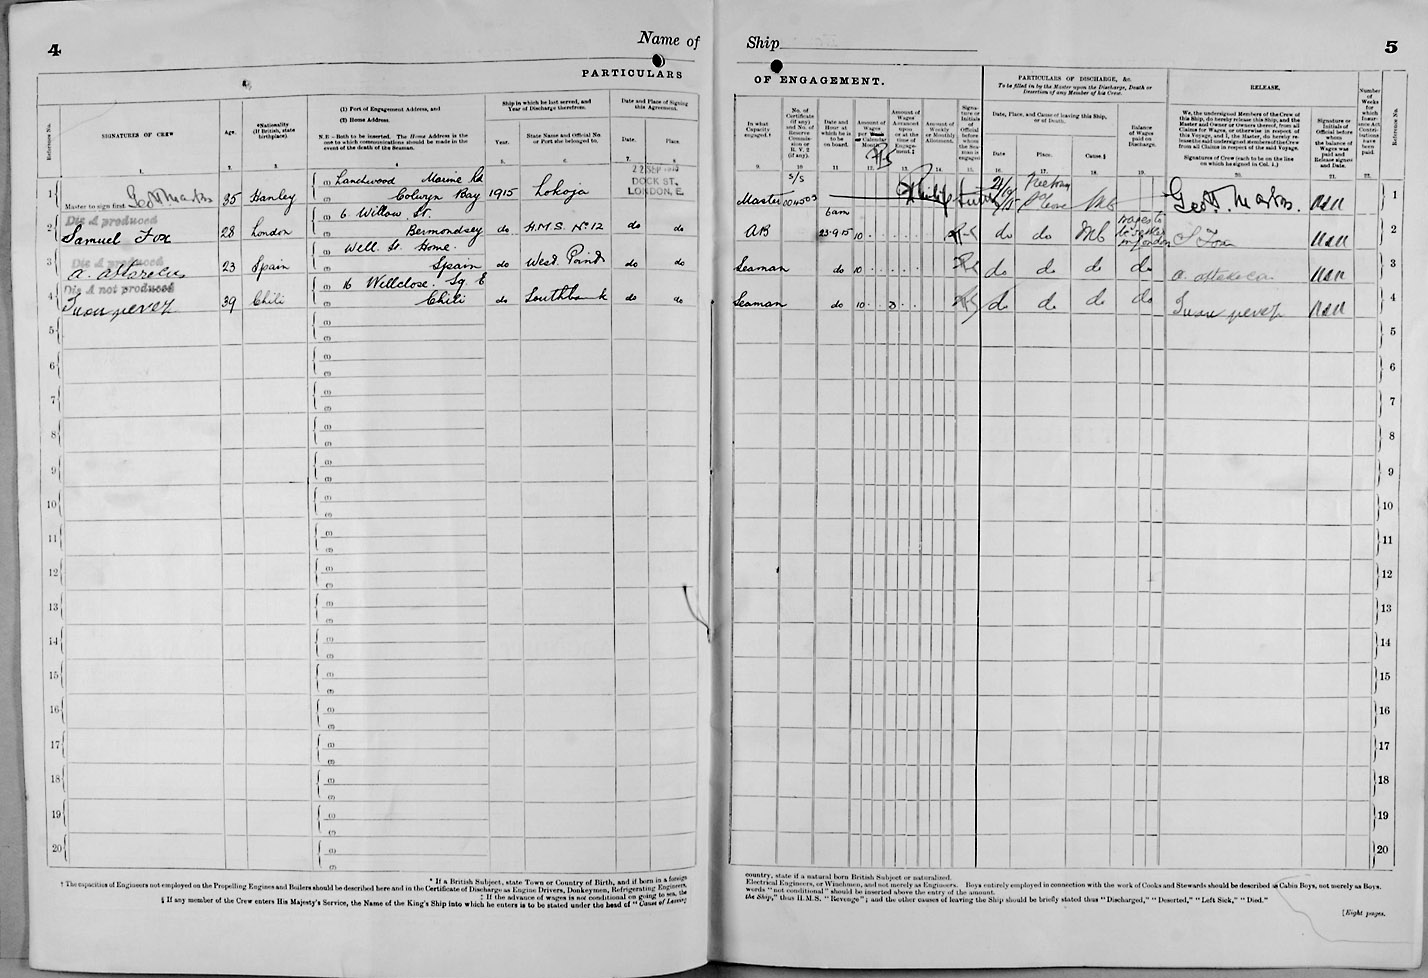 4
Name of
PARTICULARS
Reference No.
SIGNATURES OF CREW
Age.
*Nationality
(If British, state
birthplace).
(1) Port of Engagement Address, and
(2) Home Address.
N.B – Both to be inserted. The Home Address is the
one to which communications should be made in the
event of the death of the Seaman.
Ship in which he last served, and
Year of Discharge therefrom.
Year.
State Name and Official No.
or Port she belonged to.
Date and Place of Signing
this Agreement.
Date.
Place.
1. 2. 3. 4 5. 6. 7. 8
22 SEP
DOCK ST.
LONDON, E.
1 Master to sign first Geo T Marks 35 Hanley (1) Marine Rd
(2) Colwyn Bay 1915 Lokoja
Dis A produced
2 Samuel Fox 28 London (1) 6 Willow St.
(2) Bermondsey do H.M.S. No 12 do do
Dis A produced
3 23 Spain (1) Well St. Home.
(2) Spain do West Point do do
Dis A not produced
4 Juan perez 39 Chili (1) 16 Wellclose Sq E
(2) Chili do Southbank do do
5
6
7
8
9
10
11
12
13
14
15
16
17
18
19
20
* If a British Subject, state Town or Country of Birth, and if born in a foreign
† The capacities of Engineers not employed on the Propelling Engines and Boilers should be described here and in the Certificate of Discharge as Engine Drivers, Donkeymen, Refrigerating Engineers,
‡ If the advance of wages is not conditional on going to sea, the
§ If any member of the Crew enters His Majesty's Service, the Name of the King's Ship into which he enters is to be stated under the head of "Cause of Leaving
Ship
5
OF ENGAGEMENT.
In what
Capacity
engaged.†
No. of
Certificate
(if any)
and No. of
Reserve
Commis-
sion or
R. V. 2
(if any).
Date and
Hour at
which he is
to be
on board.
Amount of
Wages
per Calendar
Month.
Amount of
Wages
Advanced
upon
or at the
time of
Engage-
ment.‡
Amount of
Weekly
or Monthly
Allotment.
Signa-
ture or
Initials
of
Official
before
whom
the Sea-
man is
engaged
PARTICULARS OF DISCHARGE, &c.
To be filled in by the Master upon the Discharge, Death or
Desertion of any Member of his Crew.
Date, Place, and Cause of leaving this Ship,
or of Death.
Date
Place.
Cause.§
Balance
of Wages
paid on
Discharge.
RELEASE.
We, the undersigned Members of the Crew of
this Ship, do hereby release this Ship, and the
Master and Owner or Owners thereof, from all
Claims for Wages, or otherwise in respect of
this Voyage, and I, the Master, do hereby re-
lease the said undersigned Members of the Crew
from all Claims in respect of the said Voyage.
Signatures of Crew (each to be on the line
on which he signed in Col. 1.)
Signature or
Initials of
Official before
whom
the balance of
Wages was
paid and
Release signed
and Date.
Number
of
Weeks
for
which
Insur-
ance Act
Contri-
butions
have
been
paid.
Reference No.
9. 10 11 12. 13. 14. 15. 16. 17. 18. 19. 20. 21. 22.
Master 004503 Geo T. Marks. 1
6am
AB 23.9.15 10 do do S Fox 2
Seaman do 10 do do do do 3
Seaman do 10 3 do do do do Juan perez 4
5
6
7
8
9
10
11
12
13
14
15
16
17
18
19
20
country, state if a natural born British Subject or naturalized.
Electrical Engineers, or Winchmen, and not merely as Engineers. Boys entirely employed in connection with the work of Cooks and Stewards should be described as Cabin Boys, not merely as Boys.
words "not conditional" should be inserted above the entry of the amount.
the Ship," thus H.M.S. "Revenge"; and the other causes of leaving the Ship should be briefly stated thus "Discharged," "Deserted," "Left Sick," "Died."
[Eight pages.